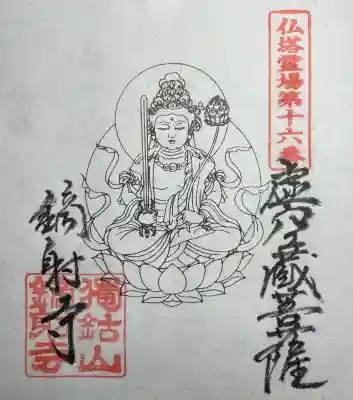 仏塔霊場第十六番
虚空蔵菩薩
鏑射寺
独鈷山
鏑射寺